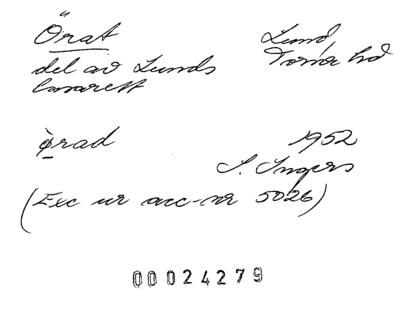 Örat Lund,
del av Lunds Torna hd
lasarett
örad 1952
I. Ingers
(Exc ur acc-nr 5026)
00024279